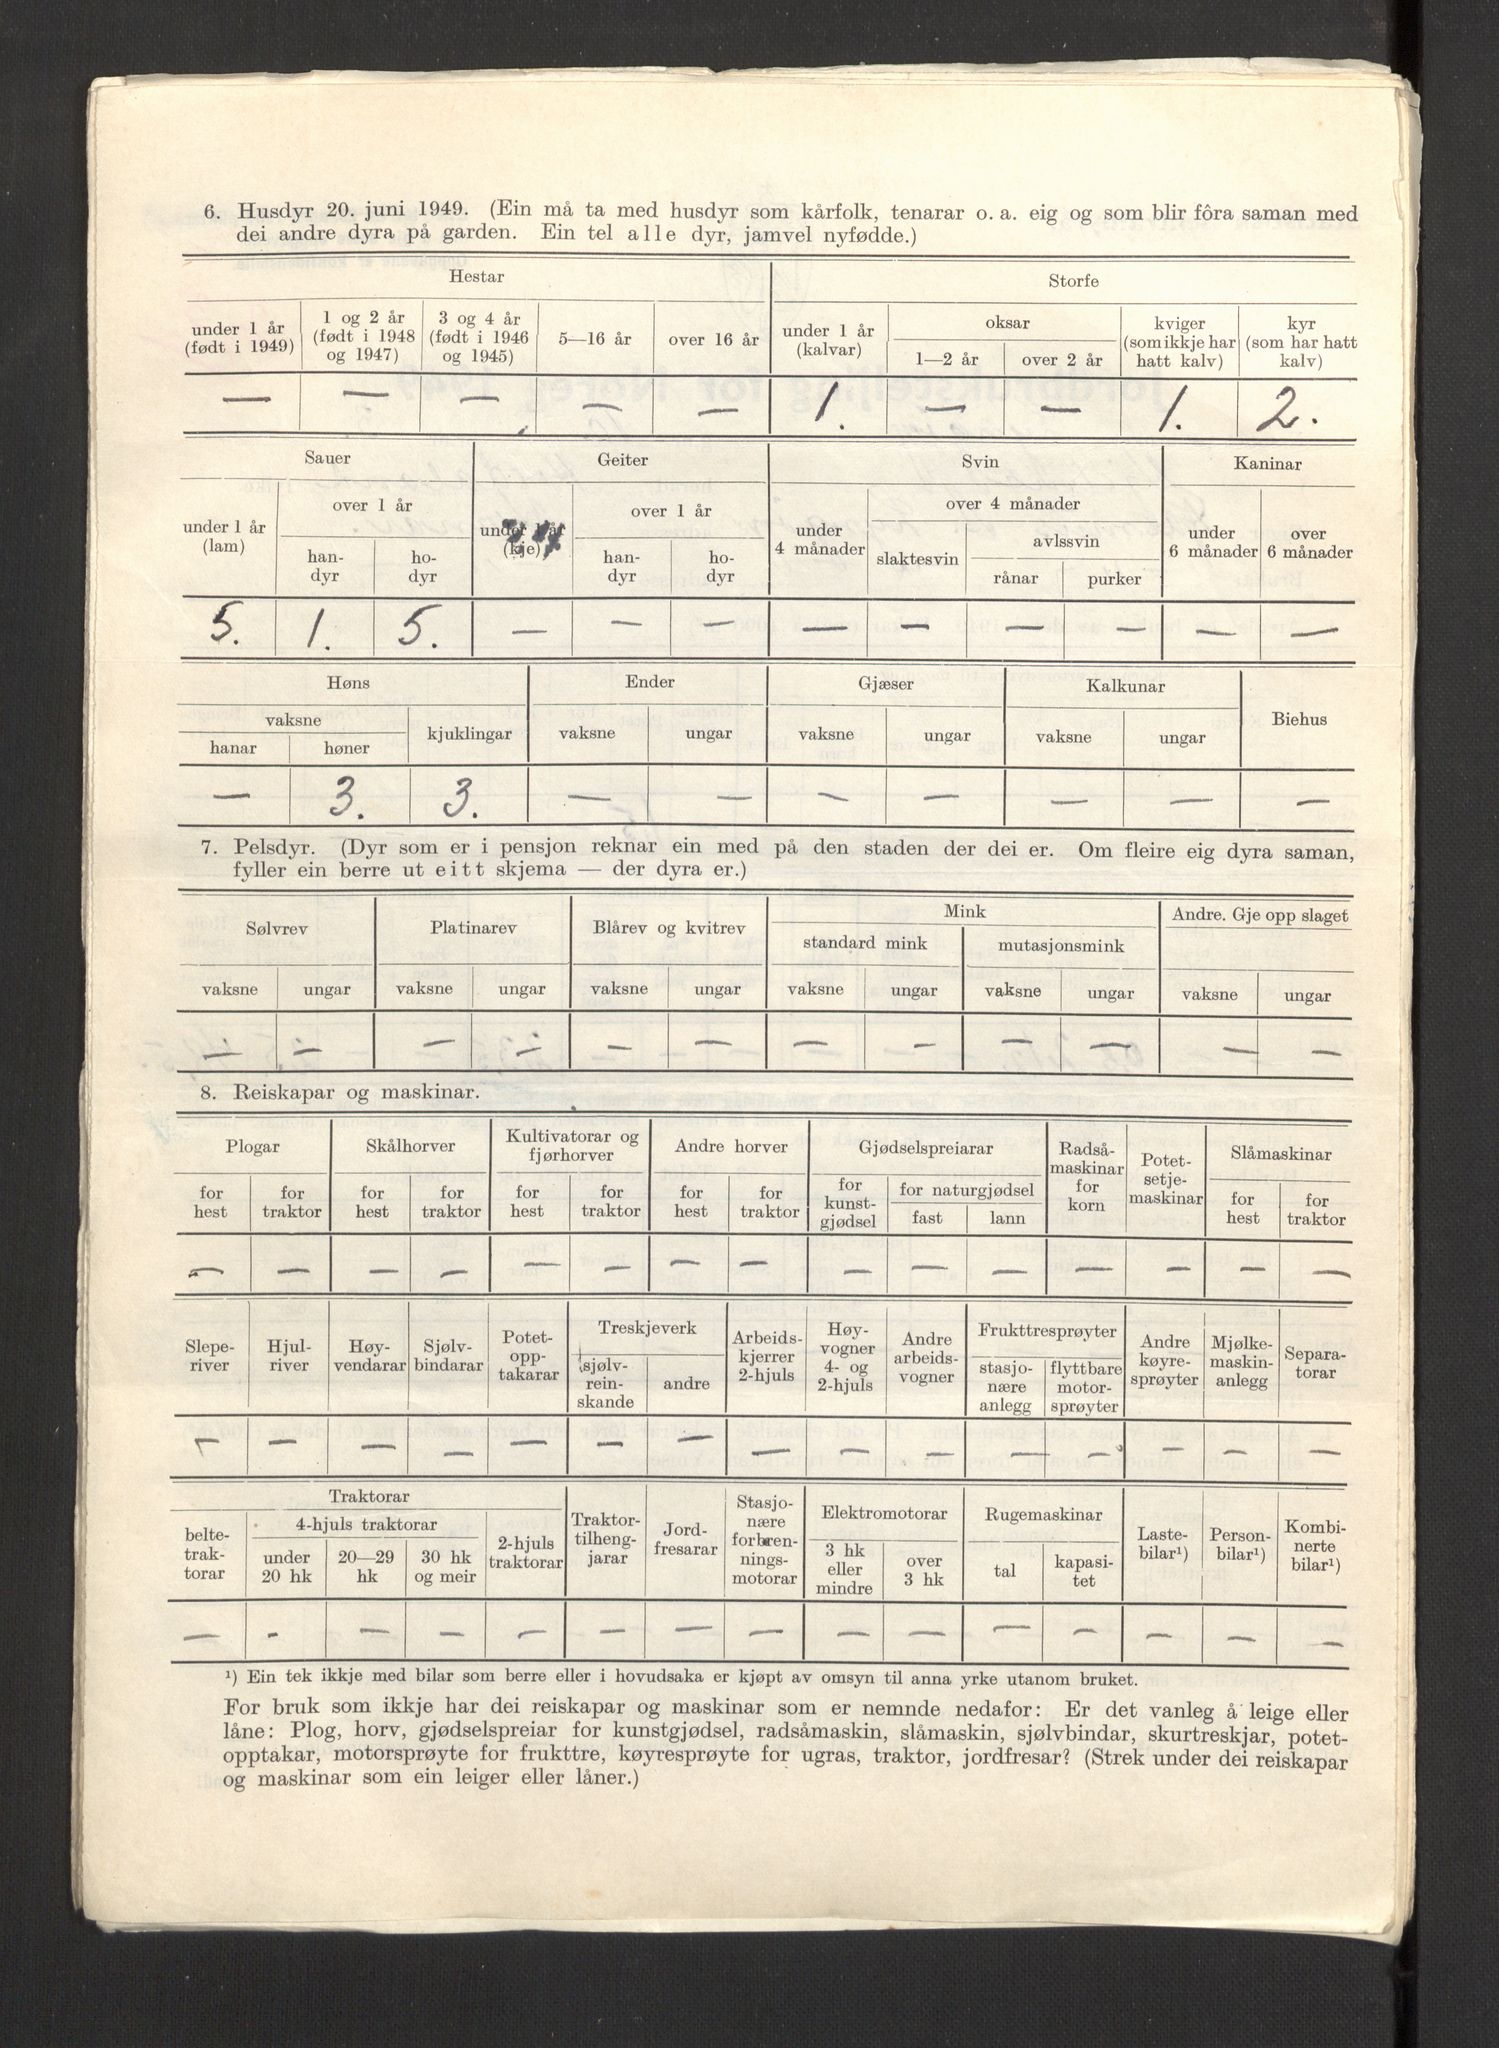 6. Husdyr 20. juni 1949. (Ein må ta med husdyr som kårfolk, tenarar o. a. eig og som blir fôra saman med
dei andre dyra på garden. Ein tel alle dyr, jamvel nyfødde.)
Hestar Storfe
under 1 år (født i 1949) 1 og 2 år (født i 1948 og 1947) 3 og 4 år (født i 1946 og 1945) 5—16 år over 16 år under 1 år (kalvar) oksar 1—2 år over 2 år kviger (som ikkje har hatt kalv) kyr (som har hatt kalv)
— — — — — 1. — — 1. 2.
Sauer Geiter Svin Kaninar
under 1 år (lam) over 1 år han-dyr ho-dyr under 1 år (kje) over 1 år han-dyr ho-dyr under 4 månader over 4 månader slaktesvin avlssvin rånar purker under 6 månader over 6 månader
5. 1. 5. — — — — — — — — —
Høns Ender Gjæser Kalkunar Biehus
vaksne hanar høner kjuklingar vaksne ungar vaksne ungar vaksne ungar
— 3. 3. — — — — — — —
7. Pelsdyr. (Dyr som er i pensjon reknar ein med på den staden der dei er. Om fleire eig dyra saman,
fyller ein berre ut eitt skjema — der dyra er.)
Sølvrev Platinarev Blårev og kvitrev Mink Andre. Gje opp slaget
standard mink mutasjonsmink
vaksne ungar vaksne ungar vaksne ungar vaksne ungar vaksne ungar vaksne ungar
— — — — — — — — — — — —
8. Reiskapar og maskinar.
Plogar Skålhorver Kultivatorar og fjørhorver Andre horver Gjødselspreiarar Radså-maskinar for korn Potet-setje-maskinar Slåmaskinar
for hest for traktor for hest for traktor for hest for traktor for hest for traktor for kunst-gjødsel for naturgjødsel fast lann for hest for traktor
— — — — — — — — — — — — — — —
Slepe-river Hjul-river Høy-vendarar Sjølv-bindarar Potet-opp-takarar Treskjeverk sjølv-rein-skande andre Arbeids-kjerrer 2-hjuls Høy-vogner 4- og 2-hjuls Andre arbeids-vogner Frukttresprøyter stasjo-nære anlegg flyttbare motor-sprøyter Andre køyre-sprøyter Mjølke-maskin-anlegg Separa-torar
— — — — — — — — — — — — — — —
Traktorar
belte-trak-torar 4-hjuls traktorar under 20 hk 20—29 hk 30 hk og meir 2-hjuls traktorar Traktor-tilheng-jarar Jord-fresarar Stasjo-nære forbren-nings-motorar Elektromotorar 3 hk eller mindre over 3 hk Rugemaskinar tal kapasi-tet Laste-bilar¹) Person-bilar¹) Kombi-nerte bilar¹)
— — — — — — — — — — — — — — —
¹) Ein tek ikkje med bilar som berre eller i hovudsaka er kjøpt av omsyn til anna yrke utanom bruket.
For bruk som ikkje har dei reiskapar og maskinar som er nemnde nedafor: Er det vanleg å leige eller
låne: Plog, horv, gjødselspreiar for kunstgjødsel, radsåmaskin, slåmaskin, sjølvbindar, skurtreskjar, potet-
opptakar, motorsprøyte for frukttre, køyresprøyte for ugras, traktor, jordfresar? (Strek under dei reiskapar
og maskinar som ein leiger eller låner.)